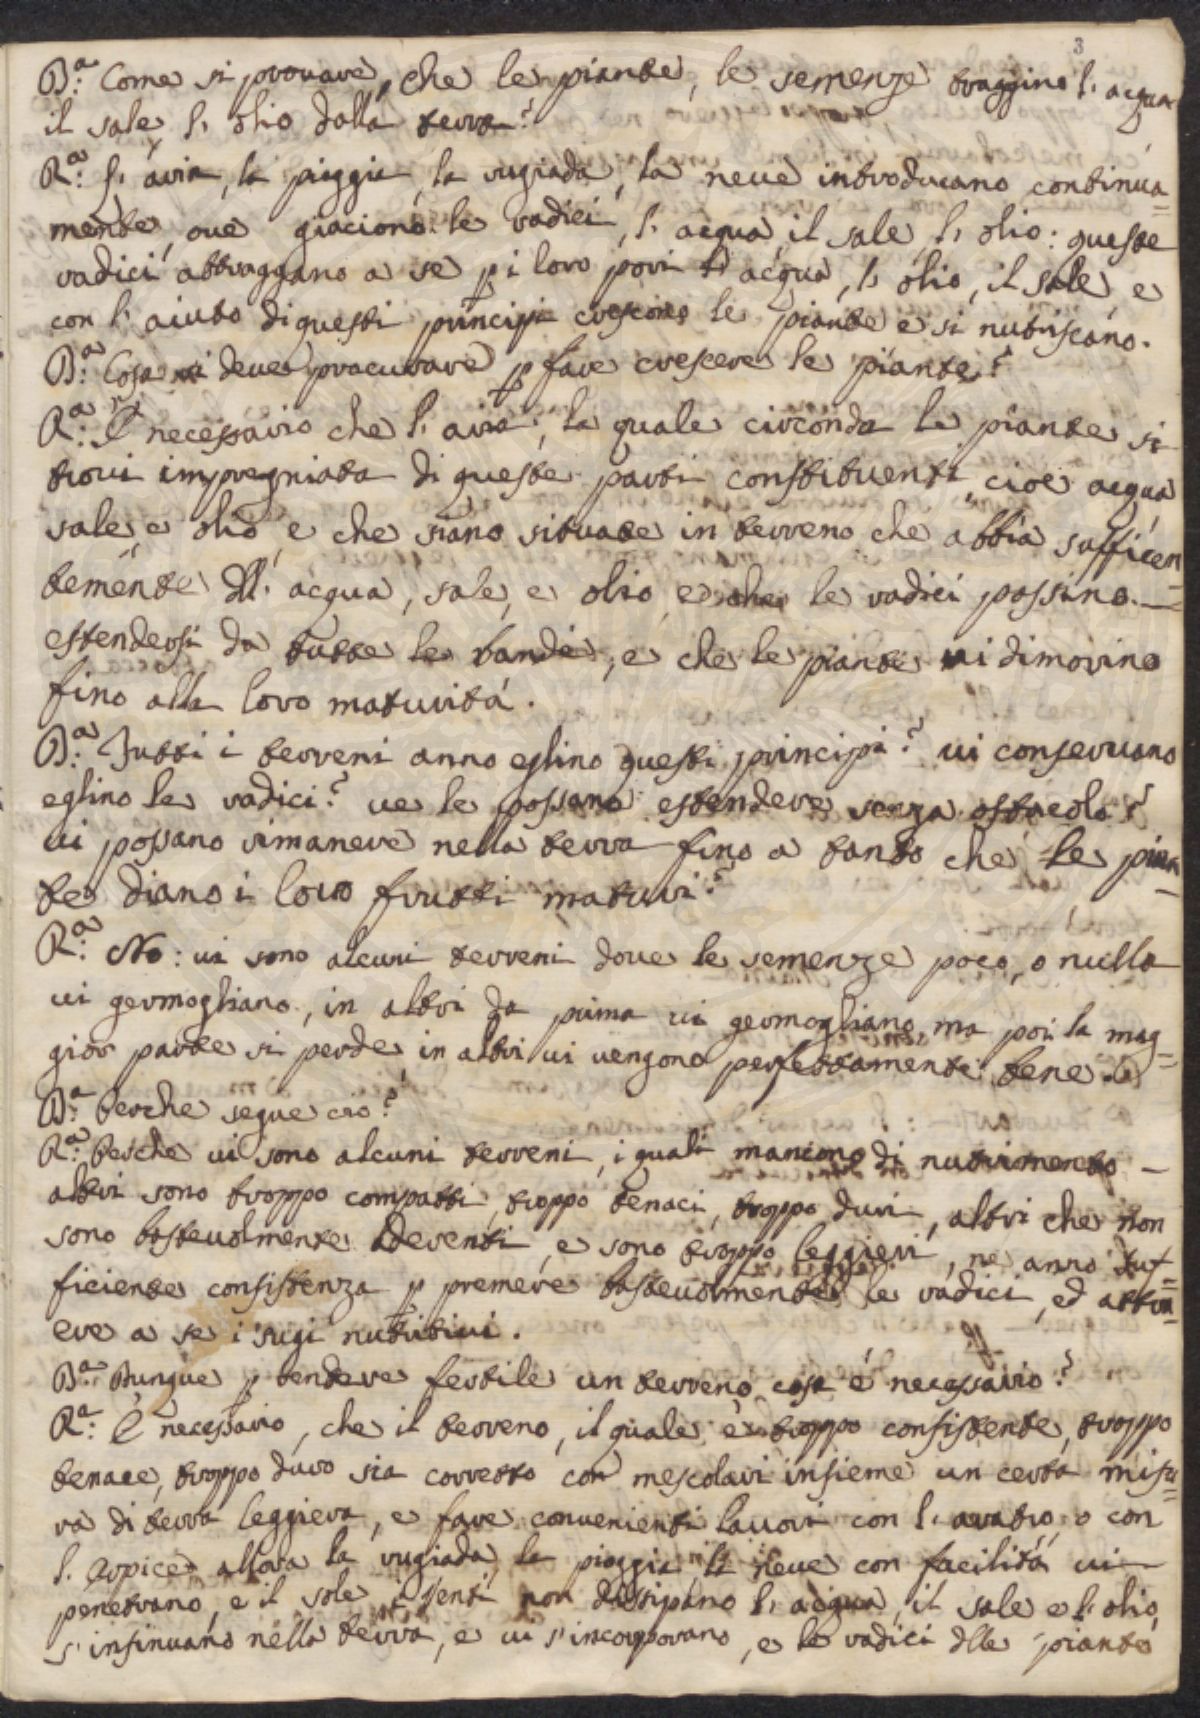 3
D.a Come si provare, che le piante, le semenze traggino l'acqua
il sale, l'olio dalla terra?
R.a L'aria, la pioggia, la rugiada, la neve introducano continua=
mente, ove giaciono le radici, l'acqua, il sale, l'olio: queste
radici attraggano a se p i loro pori l'acqua, l'olio, il sale e
con l'aiuto di questi principi crescono le piante e si nutriscano.
D.a Cosa si deve procurare p fare crescere le piante?
R.a È necessario che l'aria, la quale circonda le piante, si
trovi impregniata di queste parti constituenti, cioè acqua
sale e olio e che siano situate in terreno che abbia sufficen=
temente dll'acqua, sale, e olio e che le radici possino =
estendersi da tutte le bande, e che le piante vi dimorino
fino alla loro maturità.
D.a Tutti i terreni anno eglino questi principi? vi conservano
eglino le radici? ve le possano estendere senza ostacolo?
vi possano rimanere nella terra fino a tanto che le pian=
te diano i loro frutti maturi?
R.a No: vi sono alcuni terreni dove le semenze poco, o nulla
vi germogliano, in altri da prima vi germogliano, ma poi la mag=
gior parte si perde, in altri vi vengono perfettamente bene.
D.a Perche segue ciò?
R.a Perche vi sono alcuni terreni, i quali mancono di nutrimento —
altri sono troppo compatti, troppo tenaci, troppo duri, altri che non
sono bastevolmente aderenti, e sono troppo leggieri, ne anno suf=
ficiente consistenza p premere bastevolmente le radici, ed attra=
ere a se i sugi nutritivi.
D.a Dunque p rendere fertile un terreno cosa è necessario?
R.a È necessario, che il terreno, il quale è troppo consistente, troppo
tenace, troppo duro sia corretto con mescolarvi insieme un certa misu=
ra di terra leggiera, e fare convenienti lavori con l'aratro, o con
l'erpice, allora la rugiada, la pioggia la neve con facilità vi —
penetrano, e il sole, e i venti non dissipano l'acqua, il sale e l'olio,
s'insinuano nella terra, e vi s'incorporano, e le radici dlle piante